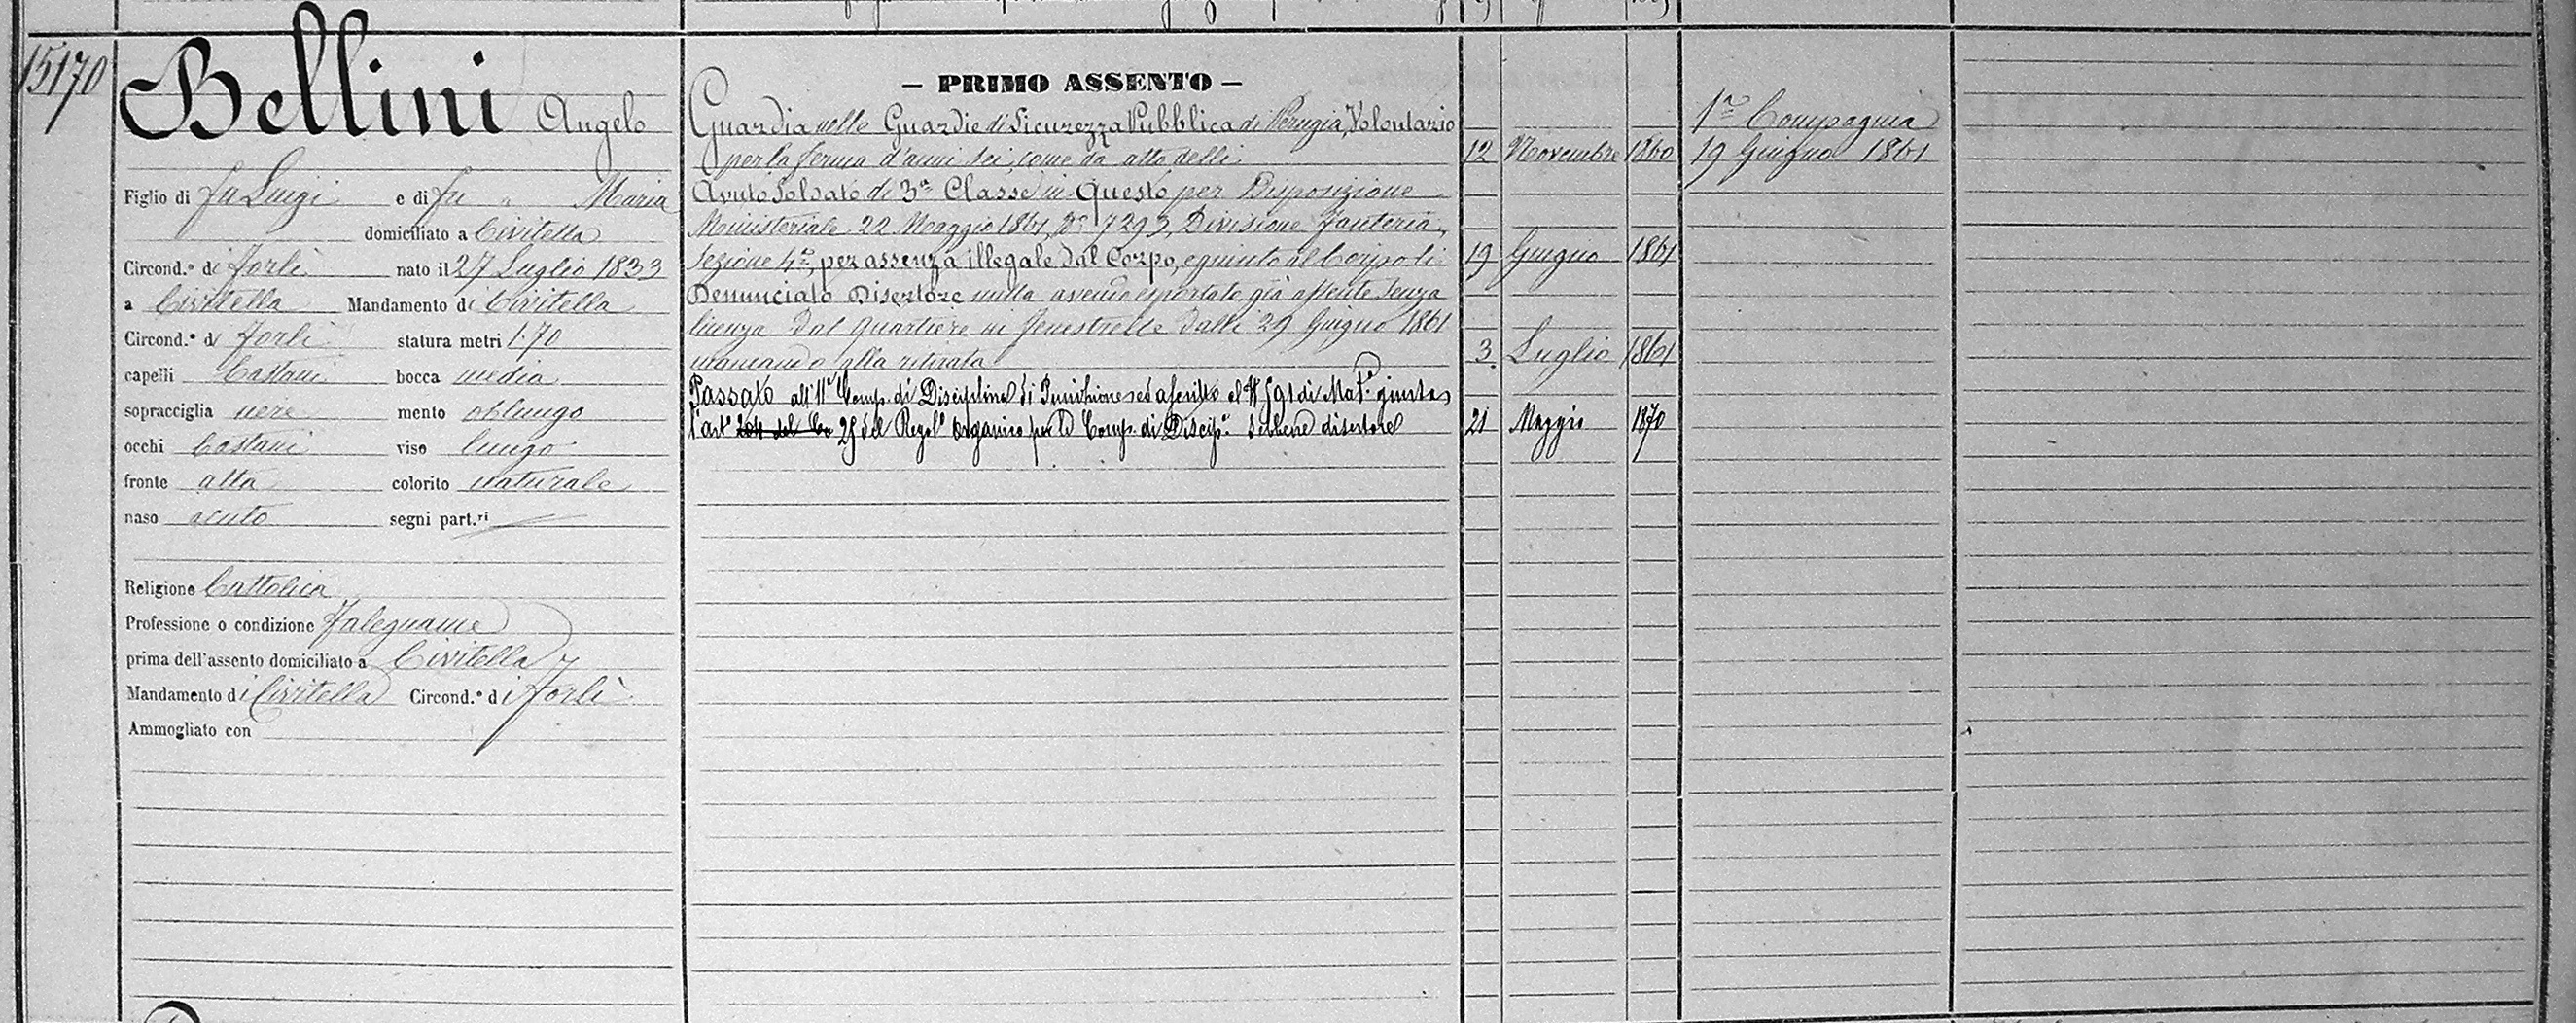 15170
Bellini Angelo
Figlio di fu Luigi e di fu " Maria
domiciliato a Civitella
Circond.º di Forlì nato il 27 Luglio 1833
a Civitella Mandamento di Civitella
Circond.º di Forlì statura metri 1.70
capelli Castani bocca media
sopracciglia nere mento oblungo
occhi Castani viso lungo
fronte alta colorito naturale
naso acuto segni part.ri
Religione Cattolica
Professione o condizione Falegname
prima dell'assento domiciliato a Civitella
Mandamento di Civitella Circond.º di Forlì
Ammogliato con
— PRIMO ASSENTO —
Guardia nelle Guardie di Sicurezza Pubblica di Perugia, Volontario
per la ferma d'anni sei, come da atto delli 12 Novembre 1860
Avuto Soldato di 3ª Classe in Questo per Disposizione
Ministeriale 22 Maggio 1861, Nº 7293, Divisione Fanteria,
Sezione 4ª, per assenza illegale dal Corpo, e giunto al Corpo li 19 Giugno 1861
Denunciato Disertore nulla avendo esportato già assente senza
licenza dal quartiere in Fenestrelle dalli 29 Giugno 1861
mancando alla ritirata 3 Luglio 1861
Passato all'11ª Comp. di Disciplina di Punizione ed ascritto al Nº 591 di Mat.ª giusta
l'artº 204 del Co 25 del Regolº Organico per le Comp. di Discipª. sebbene disertore 21 Maggio 1870
1ª Compagnia
19 Giugno 1861